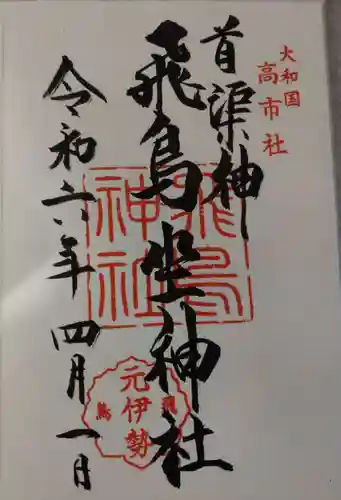 大和国
高市社
首渠神
飛鳥坐神社
飛鳥
神社
元伊勢
飛鳥
令和六年四月一日